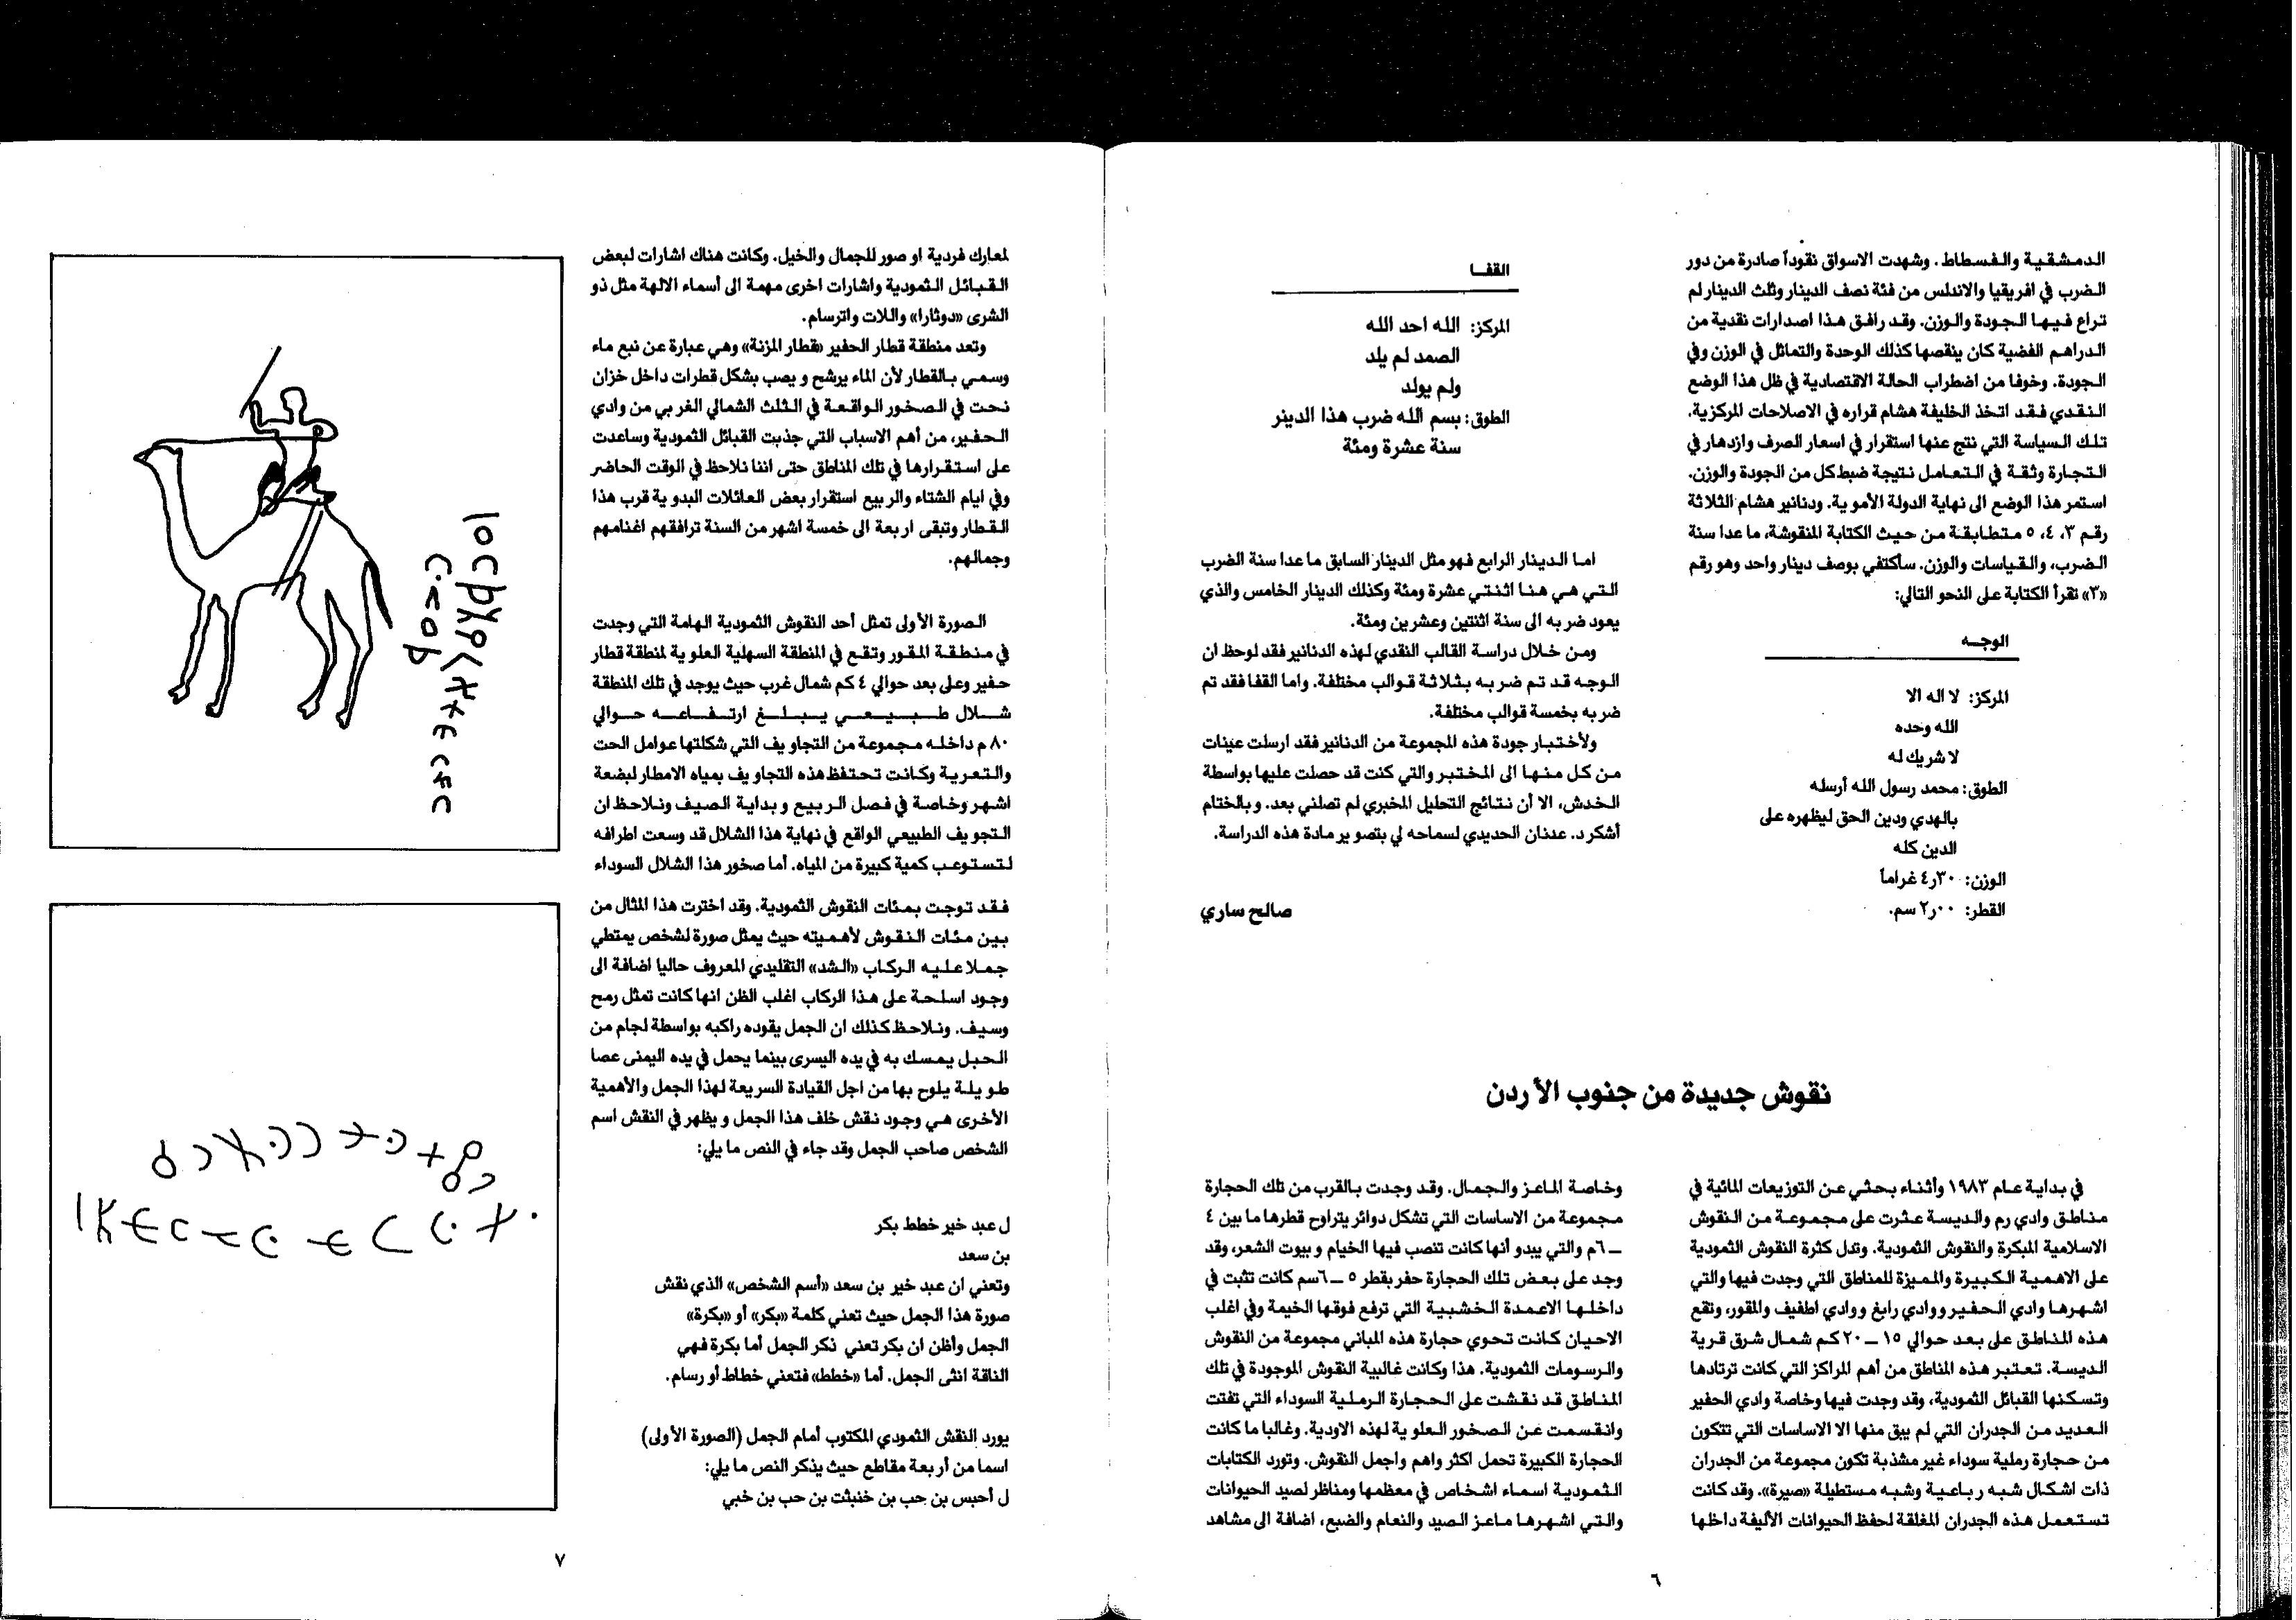 الدمشقية والفسطاط. وشهدت الاسواق نقوداً صادرة من دور
الضرب في افريقيا والاندلس من فئة نصف الدينار وثلث الدينار لم
تراع فيها الجودة والوزن. وقد رافق هذا اصدارات نقدية من
الدراهم الفضية كان ينقصها كذلك الوحدة والتماثل في الوزن وفي
الجودة. وخوفا من اضطراب الحالة الاقتصادية في ظل هذا الوضع
النقدي فقد اتخذ الخليفة هشام قراره في الاصلاحات المركزية.
تلك السياسة التي نتج عنها استقرار في اسعار الصرف وازدهار في
التجارة وثقة في التعامل نتيجة ضبط كل من الجودة والوزن.
استمر هذا الوضع الى نهاية الدولة الأموية. ودنانير هشام الثلاثة
رقم ٣، ٤، ٥ متطابقة من حيث الكتابة المنقوشة، ما عدا سنة
الضرب، والقياسات والوزن. سأكتفي بوصف دينار واحد وهو رقم
«٣» تقرأ الكتابة على النحو التالي:
الوجه
المركز: لا اله الا
الله وحده
لا شريك له
الطوق: محمد رسول الله أرسله
بالهدي ودين الحق ليظهره على
الدين كله
الوزن: ٣٠ر٤ غراماً
القطر: ٠٠ر٢ سم.
القفا
المركز: الله احد الله
الصمد لم يلد
ولم يولد
الطوق: بسم الله ضرب هذا الدينر
سنة عشرة ومئة
اما الدينار الرابع فهو مثل الدينار السابق ما عدا سنة الضرب
التي هي هنا اثنتي عشرة ومئة وكذلك الدينار الخامس والذي
يعود ضربه الى سنة اثنتين وعشرين ومئة.
ومن خلال دراسة القالب النقدي لهذه الدنانير فقد لوحظ ان
الوجه قد تم ضربه بثلاثة قوالب مختلفة. واما القفا فقد تم
ضربه بخمسة قوالب مختلفة.
ولأختبار جودة هذه المجموعة من الدنانير فقد ارسلت عينات
من كل منها الى المختبر والتي كنت قد حصلت عليها بواسطة
الخدش، الا أن نتائج التحليل المخبري لم تصلني بعد. وبالختام
أشكر د. عدنان الحديدي لسماحه لي بتصوير مادة هذه الدراسة.
صالح ساري
نقوش جديدة من جنوب الأردن
في بداية عام ١٩٨٣ وأثناء بحثي عن التوزيعات المائية في
مناطق وادي رم والديسة عثرت على مجموعة من النقوش
الاسلامية المبكرة والنقوش الثمودية. وتدل كثرة النقوش الثمودية
على الاهمية الكبيرة والمميزة للمناطق التي وجدت فيها والتي
اشهرها وادي الحفير ووادي رابغ ووادي اطفيف والمقور، وتقع
هذه المناطق على بعد حوالي ١٥ ــ ٢٠ كم شمال شرق قرية
الديسة. تعتبر هذه المناطق من أهم المراكز التي كانت ترتادها
وتسكنها القبائل الثمودية، وقد وجدت فيها وخاصة وادي الحفير
العديد من الجدران التي لم يبق منها الا الاساسات التي تتكون
من حجارة رملية سوداء غير مشذبة تكون مجموعة من الجدران
ذات اشكال شبه رباعية وشبه مستطيلة «صيرة». وقد كانت
تستعمل هذه الجدران المغلقة لحفظ الحيوانات الأليفة داخلها
وخاصة الماعز والجمال. وقد وجدت بالقرب من تلك الحجارة
مجموعة من الاساسات التي تشكل دوائر يتراوح قطرها ما بين ٤
ــ ٦م والتي يبدو أنها كانت تنصب فيها الخيام وبيوت الشعر، وقد
وجد على بعض تلك الحجارة حفر بقطر ٥ ــ ٦سم كانت تثبت في
داخلها الاعمدة الخشبية التي ترفع فوقها الخيمة وفي اغلب
الاحيان كانت تحوي حجارة هذه المباني مجموعة من النقوش
والرسومات الثمودية. هذا وكانت غالبية النقوش الموجودة في تلك
المناطق قد نقشت على الحجارة الرملية السوداء التي تفتت
وانقسمت عن الصخور العلوية لهذه الاودية. وغالبا ما كانت
الحجارة الكبيرة تحمل اكثر واهم واجمل النقوش. وتورد الكتابات
الثمودية اسماء اشخاص في معظمها ومناظر لصيد الحيوانات
والتي اشهرها ماعز الصيد والنعام والضبع، اضافة الى مشاهد
٦
لمعارك فردية او صور للجمال والخيل. وكانت هناك اشارات لبعض
القبائل الثمودية واشارات اخرى مهمة الى أسماء الالهة مثل ذو
الشرى «دوثارا» واللات واترسام.
وتعد منطقة قطار الحفير «قطار المزنة» وهي عبارة عن نبع ماء
وسمي بالقطار لأن الماء يرشح ويصب بشكل قطرات داخل خزان
نحت في الصخور الواقعة في الثلث الشمالي الغربي من وادي
الحفير، من أهم الاسباب التي جذبت القبائل الثمودية وساعدت
على استقرارها في تلك المناطق حتى اننا نلاحظ في الوقت الحاضر
وفي ايام الشتاء والربيع استقرار بعض العائلات البدوية قرب هذا
القطار وتبقى اربعة الى خمسة اشهر من السنة ترافقهم اغنامهم
وجمالهم.
الصورة الأولى تمثل أحد النقوش الثمودية الهامة التي وجدت
في منطقة المقور وتقع في المنطقة السهلية العلوية لمنطقة قطار
حفير وعلى بعد حوالي ٤ كم شمال غرب حيث يوجد في تلك المنطقة
شلال طبيعي يبلغ ارتفاعه حوالي
٨٠ م داخله مجموعة من التجاويف التي شكلتها عوامل الحت
والتعرية وكانت تحتفظ هذه التجاويف بمياه الامطار لبضعة
اشهر وخاصة في فصل الربيع وبداية الصيف ونلاحظ ان
التجويف الطبيعي الواقع في نهاية هذا الشلال قد وسعت اطرافه
لتستوعب كمية كبيرة من المياه. أما صخور هذا الشلال السوداء
فقد توجت بمئات النقوش الثمودية. وقد اخترت هذا المثال من
بين مئات النقوش لأهميته حيث يمثل صورة لشخص يمتطي
جملا عليه الركاب «الشد» التقليدي المعروف حاليا اضافة الى
وجود اسلحة على هذا الركاب اغلب الظن انها كانت تمثل رمح
وسيف. ونلاحظ كذلك ان الجمل يقوده راكبه بواسطة لجام من
الحبل يمسك به في يده اليسرى بينما يحمل في يده اليمنى عصا
طويلة يلوح بها من اجل القيادة السريعة لهذا الجمل والأهمية
الأخرى هي وجود نقش خلف هذا الجمل ويظهر في النقش اسم
الشخص صاحب الجمل وقد جاء في النص ما يلي:
ل عبد خير خطط بكر
بن سعد
وتعني ان عبد خير بن سعد «أسم الشخص» الذي نقش
صورة هذا الجمل حيث تعني كلمة «بكر» أو «بكرة»
الجمل وأظن ان بكر تعني ذكر الجمل أما بكرة فهي
الناقة انثى الجمل. أما «خطط» فتعني خطاط أو رسام.
يورد النقش الثمودي المكتوب أمام الجمل (الصورة الأولى)
اسما من أربعة مقاطع حيث يذكر النص ما يلي:
ل أحبس بن حب بن خنبثت بن حب بن خبي
٧